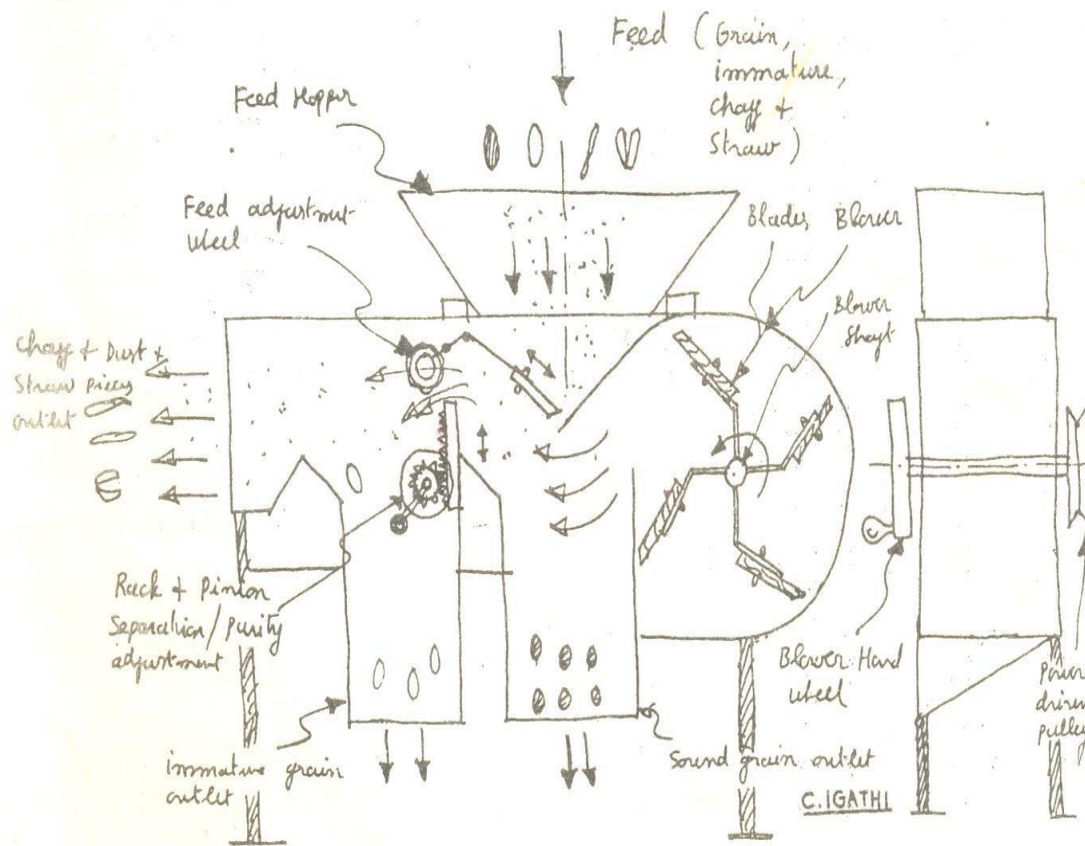 Feed (Grain,
immature,
chaff +
Straw)
Feed Hopper
Feed adjustment
wheel
Blades
Blower
Blower
Shaft
Chaff + Dust +
Straw pieces
outlet
Rack + Pinion
Separation/purity
adjustment
immature grain
outlet
Sound grain outlet
Blower Hand
wheel
Power
driven
pulley
C.IGATHI